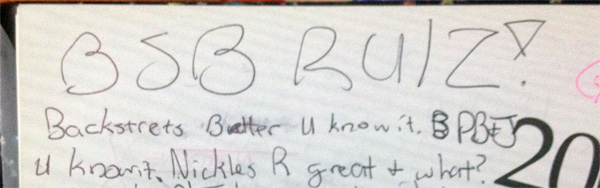 BSB RUlZ!
Backstrets Better U know it. B PB&J
U know it. Nickles R great & what?
20